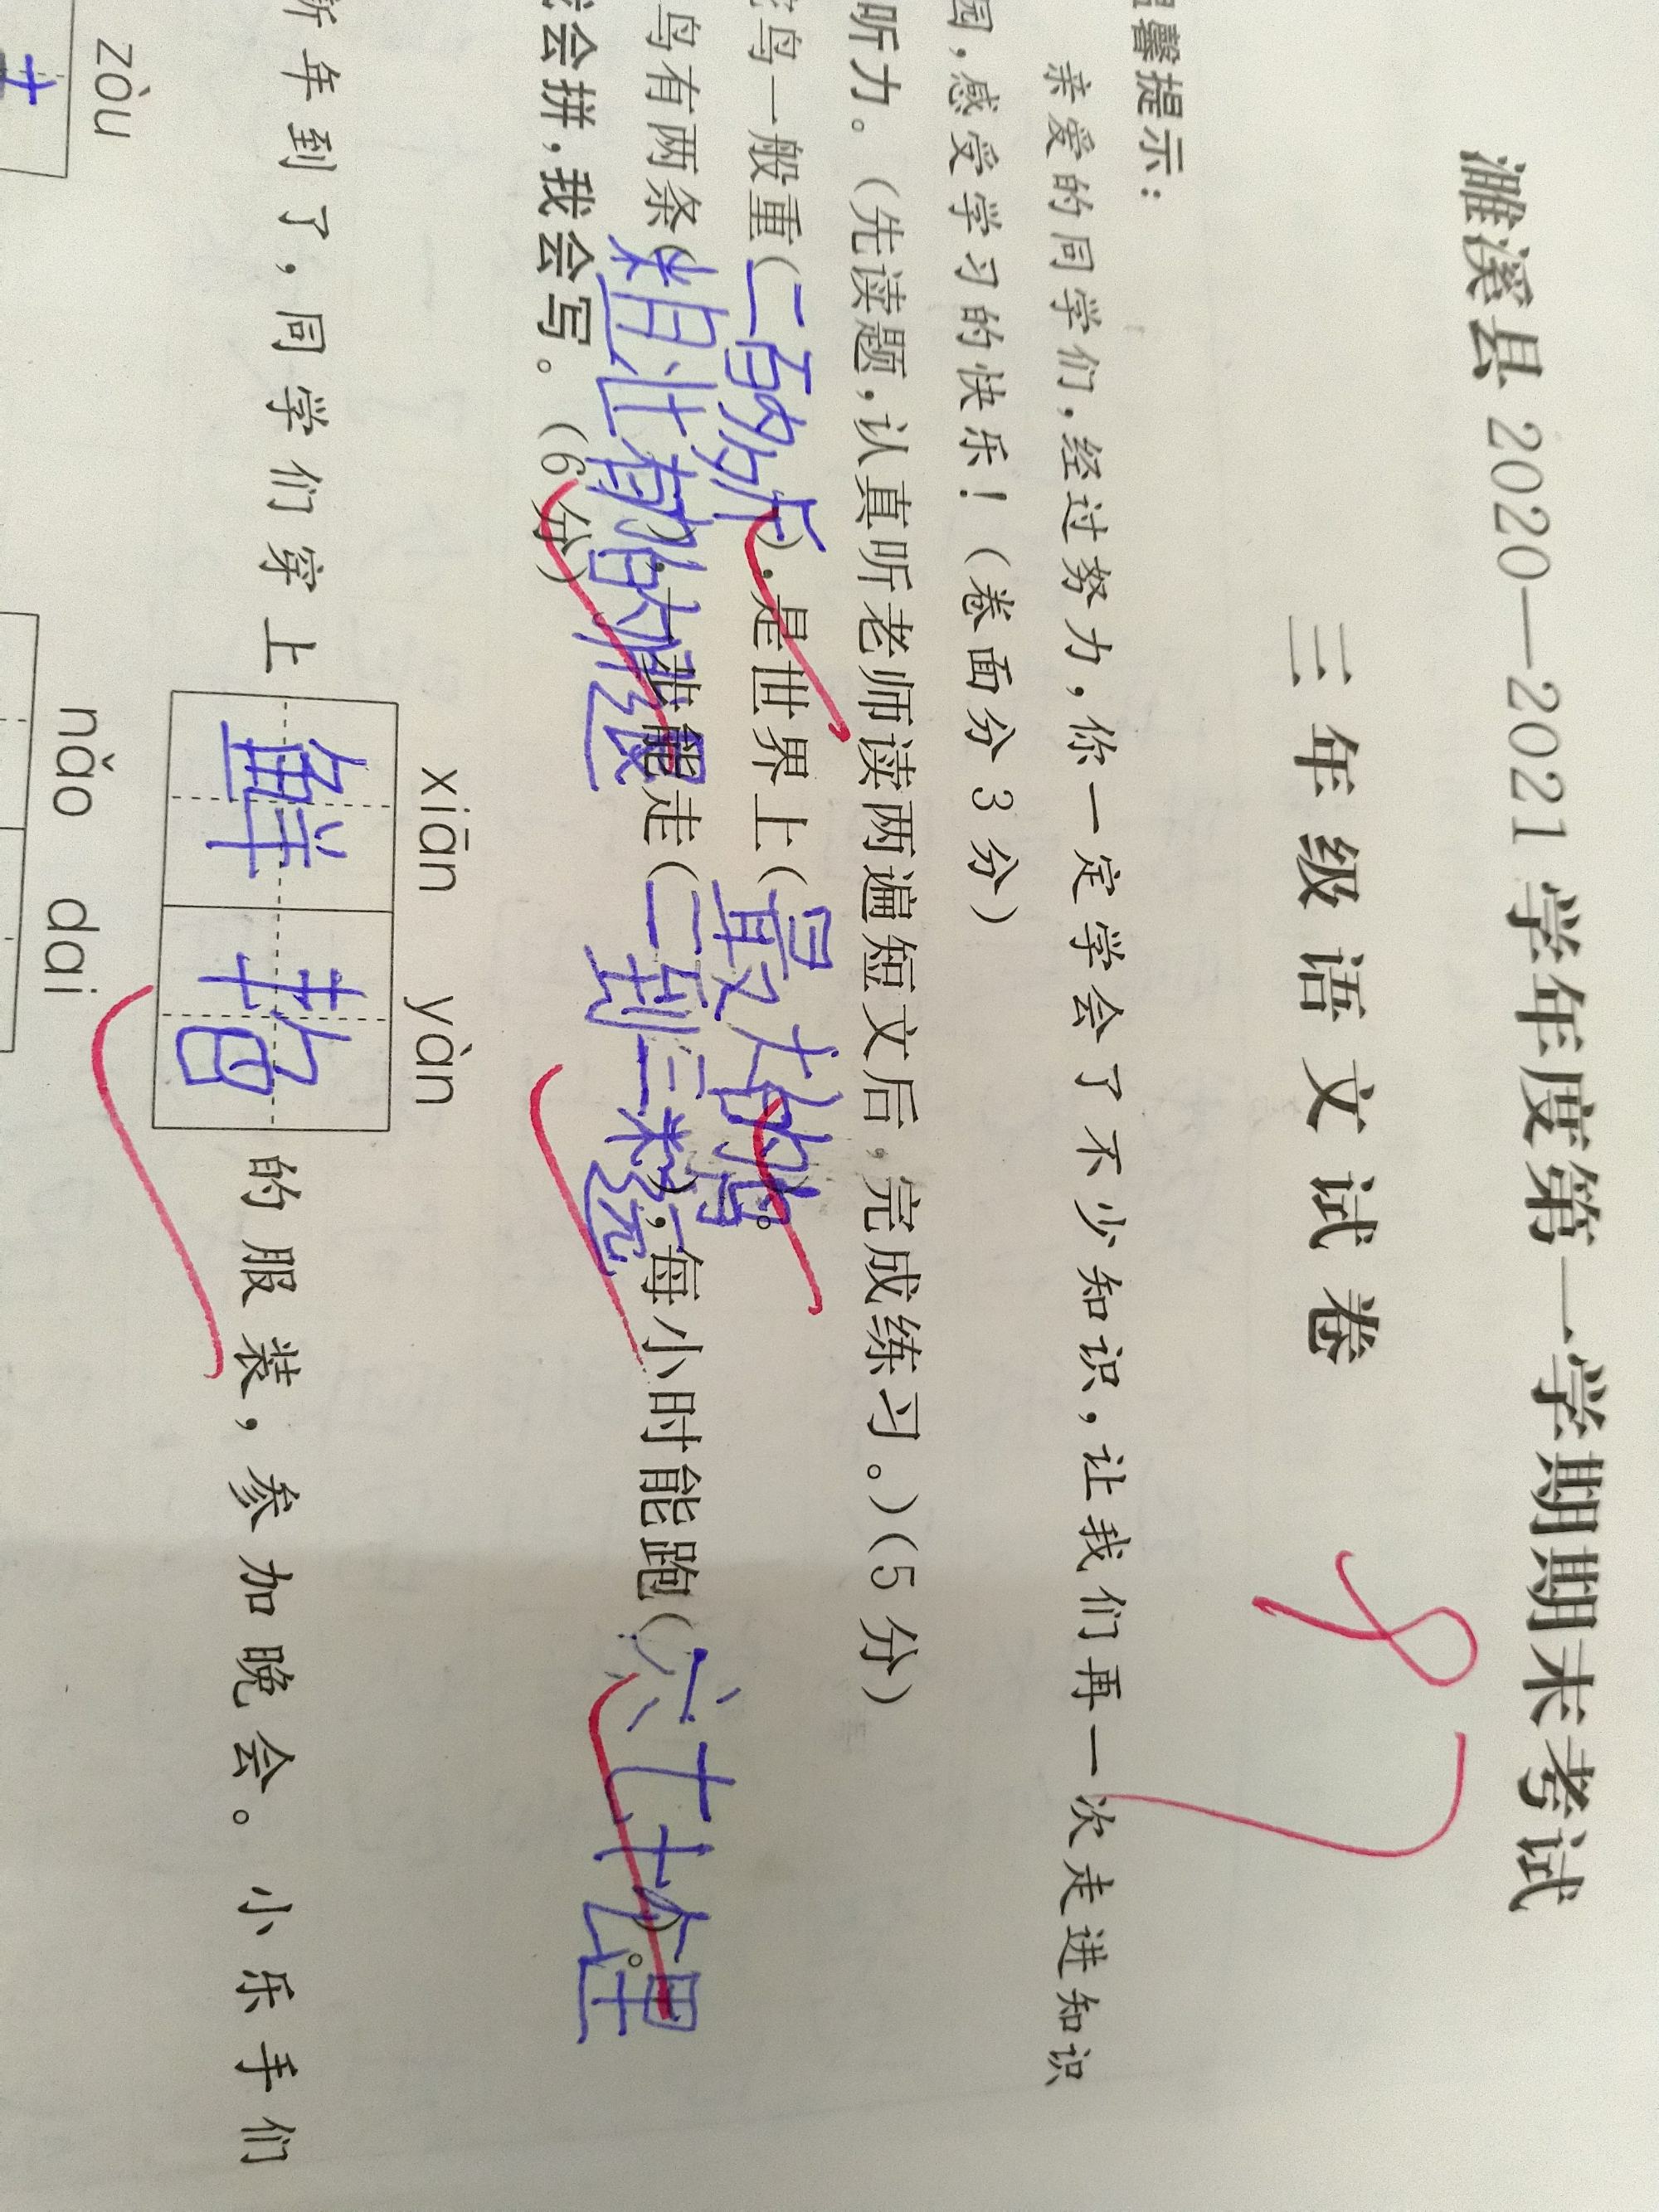 濉溪县 2020—2021 学年度第一学期期末考试
三年级语文试卷
87
馨提示：
亲爱的同学们，经过努力，你一定学会了不少知识，让我们再一次走进知识
园，感受学习的快乐！（卷面分 3 分）
听力。（先读题，认真听老师读两遍短文后，完成练习。）（5 分）
鸟一般重（二百多斤），是世界上（最大的鸟）。
鸟有两条（粗壮有的腿），能走（二到三米远），每小时能跑（六七十公里）。
会拼，我会写。（6 分）
xiān yàn
新年到了，同学们穿上 鲜 的服装，参加晚会。小乐手们
zòu nǎo dai